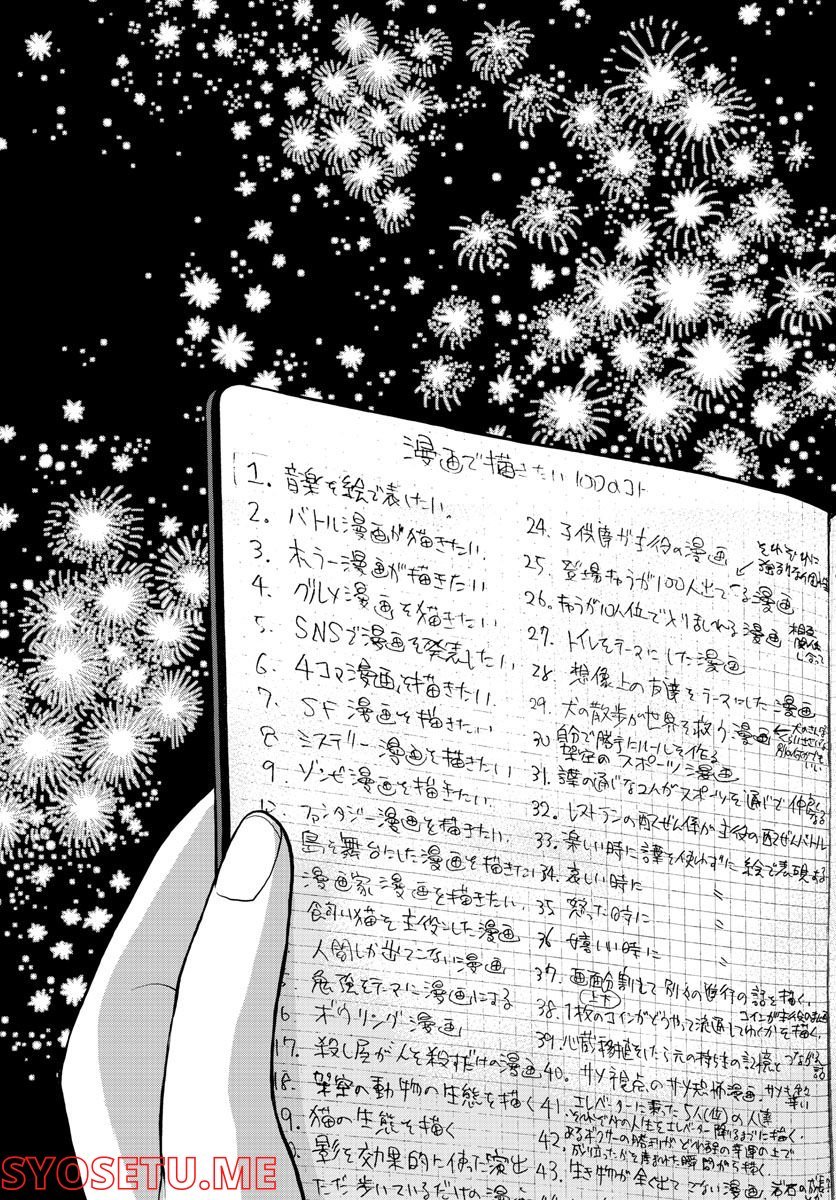 漫画で描きたい100のコト
1. 音楽を絵で表したい。
2. バトル漫画が描きたい。
3. ホラー漫画が描きたい
4. グルメ漫画を描きたい
5. SNSで漫画を発表したい
6. 4コマ漫画を描きたい。
7. SF漫画を描きたい
8. ミステリー漫画を描きたい
9. ゾンビ漫画を描きたい。
ファンタジー漫画を描きたい。
島を舞台にした漫画を描きたい
漫画家漫画を描きたい。
飼い猫を主役にした漫画
人間しか出てこない漫画
勉強をテーマに漫画にする
6 ボウリング漫画
17. 殺し屋が人を殺すだけの漫画
18. 架空の動物の生態を描く
9. 猫の生態を描く
影を効果的に使った演出
ただ歩いているだけの漫画
24. 子役達が主役の漫画
それぞれに
25. 登場キャラが100人出てくる漫画
26. キャラが10人位で入りまじれる漫画
相互
関係
27. トイレをテーマにした漫画
28. 想像上の友達をテーマにした漫画
29. 犬の散歩が世界を救う漫画
30. 自分で勝手にルールを作る
架空のスポーツ漫画
31. 言葉の通じない2人がスポーツを通じて仲良くなる
32. レストランの配ぜん係が主役の配ぜんバトル
33. 楽しい時に言葉を使わずに絵で表現する
34. 哀しい時に 〃
35. 怒った時に 〃
36. 嬉しい時に 〃
37. 画面分割をして別々の進行の話を描く。
上下
38. 1枚のコインがどうやって流通してゆくかを描く。
コインが主役の漫画
39. 心臓移植をしたら元の持ち主の記憶とつながる話
40. サメ視点のサメ恐怖漫画。
41. エレベーターに乗った5人(位)の人達
それぞれの人生をエレベーター降りるまでに描く。
42. あるボクサーの勝利がどれ程の幸運の上で
成り立ったかを産まれた瞬間から描く。
43. 生き物が全く出てこない漫画。
SYOSETU.ME